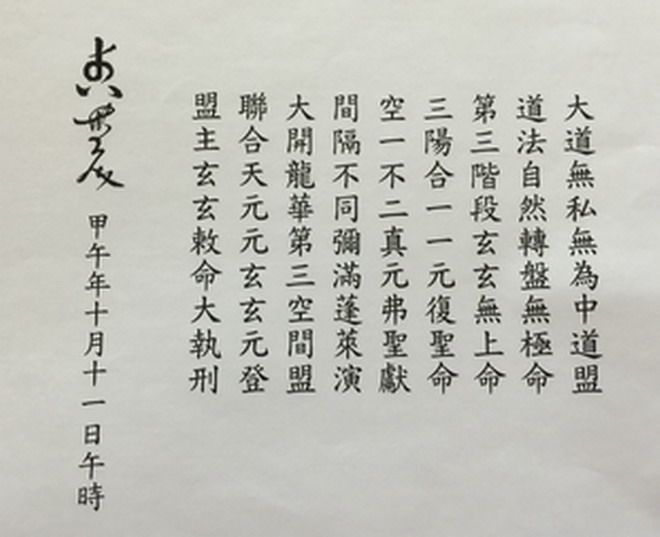 大道無私無為中道盟
道法自然轉盤無極命
第三階段玄玄無上命
三陽合一一元復聖命
空一不二真元弗聖獻
間隔不同彌滿蓬萊演
大開龍華第三空間盟
聯合天元元玄玄元登
盟主玄玄敕命大執刑
甲午年十月十一日午時